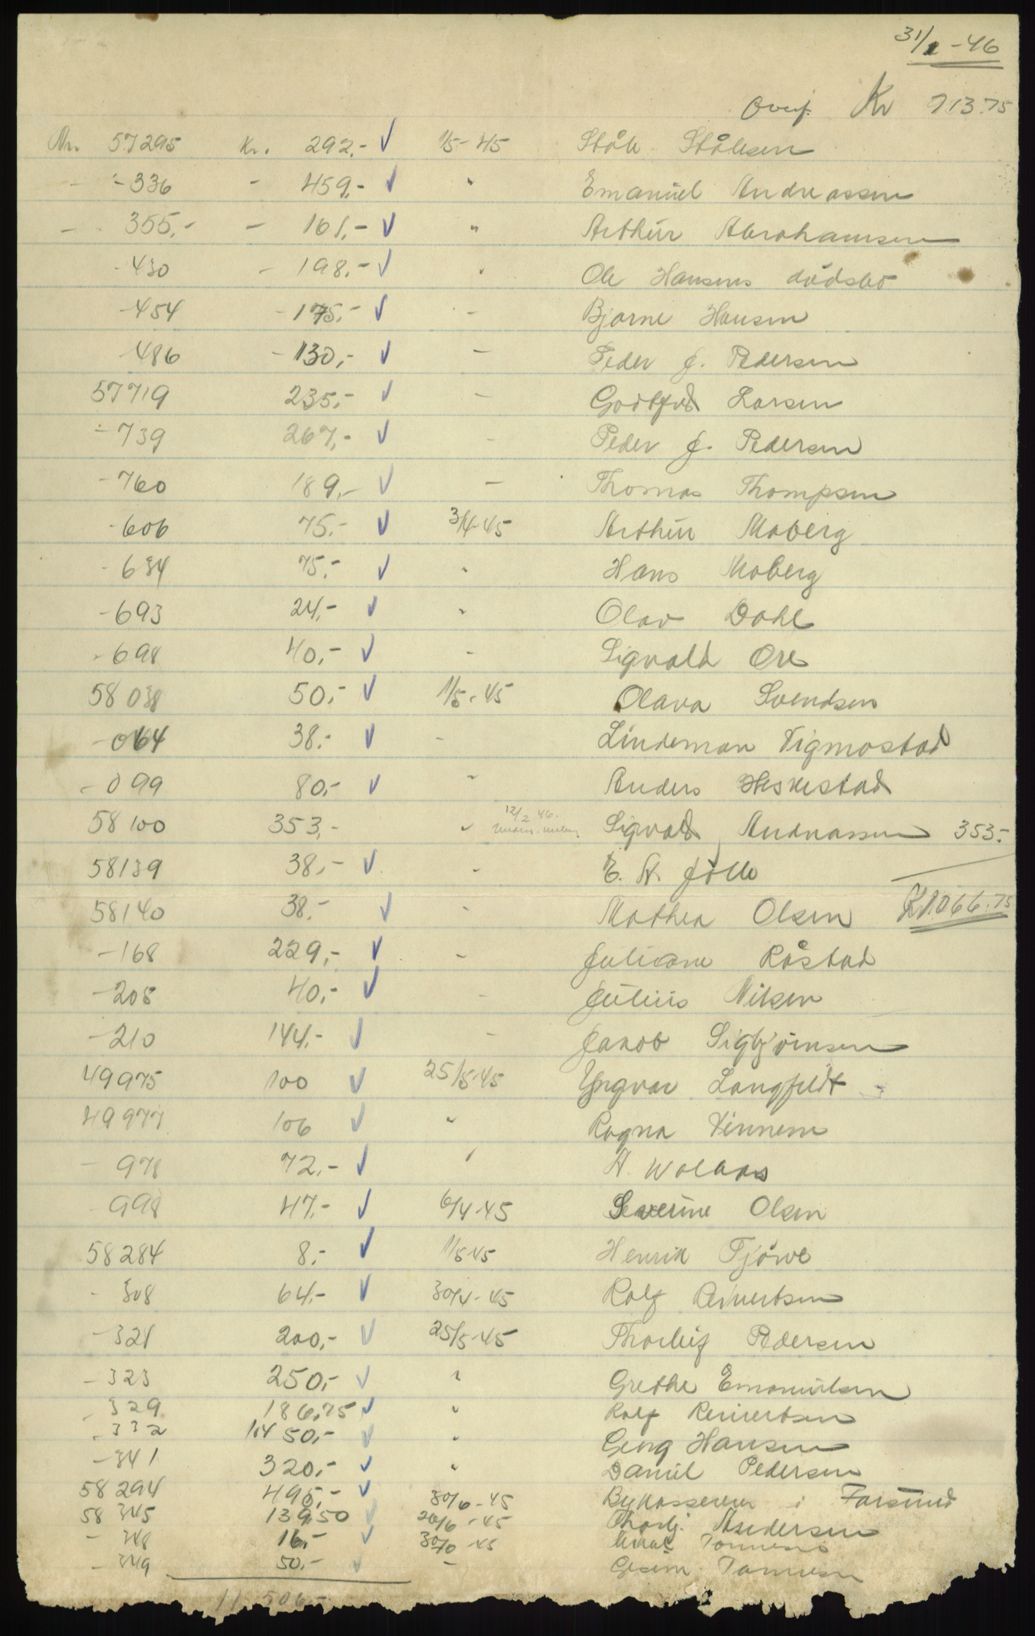 31/1 - 46
Overf. Kr 713.75
Nr. 57295 Kr. 292.- ✓ 1/5-45 Ståle Stålesen
- -336 - 459,- ✓ " Emanuel Andreassen
- 355,- - 161,- ✓ " Arthur Abrahamsen
-430 - 198,- ✓ " Ole Hansens dødsbo
-454 - 175,- ✓ - Bjarne Hansen
-486 - 130,- ✓ - Peder J. Pedersen
57719 235,- ✓ - Godtfred Larsen
-739 267,- ✓ - Peder J. Pedersen
-760 189,- ✓ - Thomas Thompsen
-606 75.- ✓ 3/4-45 Arthur Moberg
-634 75,- ✓ " Hans Moberg
-693 24,- ✓ " Olav Dahl
-698 40,- ✓ - Sigvald Ore
58038 50,- ✓ 1/5-45 Olava Svendsen
-064 38.- ✓ - Lindeman Vigmostad
-099 80,- ✓ " Anders Heskestad
58100 353,- " 12/2 46. Sigvald Andreassen 353.-
58139 38,- ✓ - E. A. Jølle
58140 38.- ✓ - Mathea Olsen Kr 1.066.75
-168 229,- ✓ - Juliane Råstad
-205 40,- ✓ - Julius Nilsen
-210 144,- ✓ - Jakob Sigbjørnsen
49975 100 ✓ 25/5-45 Yngvar Langfeldt
49977 106 ✓ " Ragna Vinnem
- 978 72.- ✓ " A. Wolaas
998 47.- ✓ 6/4-45 Severine Olsen
58284 8.- ✓ 1/5-45 Henrik Fjørve
- 308 64,- ✓ 30/4-45 Rolf Reinertsen
-321 200,- ✓ 25/5-45 Thorleif Pedersen
-323 250,- ✓ " Grethe Emanuelsen
-329 186,75 ✓ " Rolf Reinertsen
-332 1450,- ✓ " Georg Hansen
-341 320,- ✓ " Daniel Pedersen
58294 495,- ✓ 30/6-45 Bykassereren i Farsund
58345 139,50 ✓ 20/6-45 Thorbj. Andersen
- 348 16,- ✓ 30/6-45 Tønnesen
- 349 50,- ✓ - Gesine Tønnesen
11 506,-